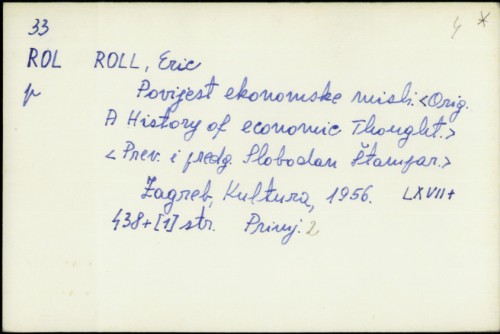 33 4 *
ROL ROLL, Eric
p Povijest ekonomske misli. <Orig.
A History of economic Thought.>
<Prev. i predg. Slobodan Štampar.>
Zagreb, Kultura, 1956. LXVII+
438+[1] str. Primj. 2